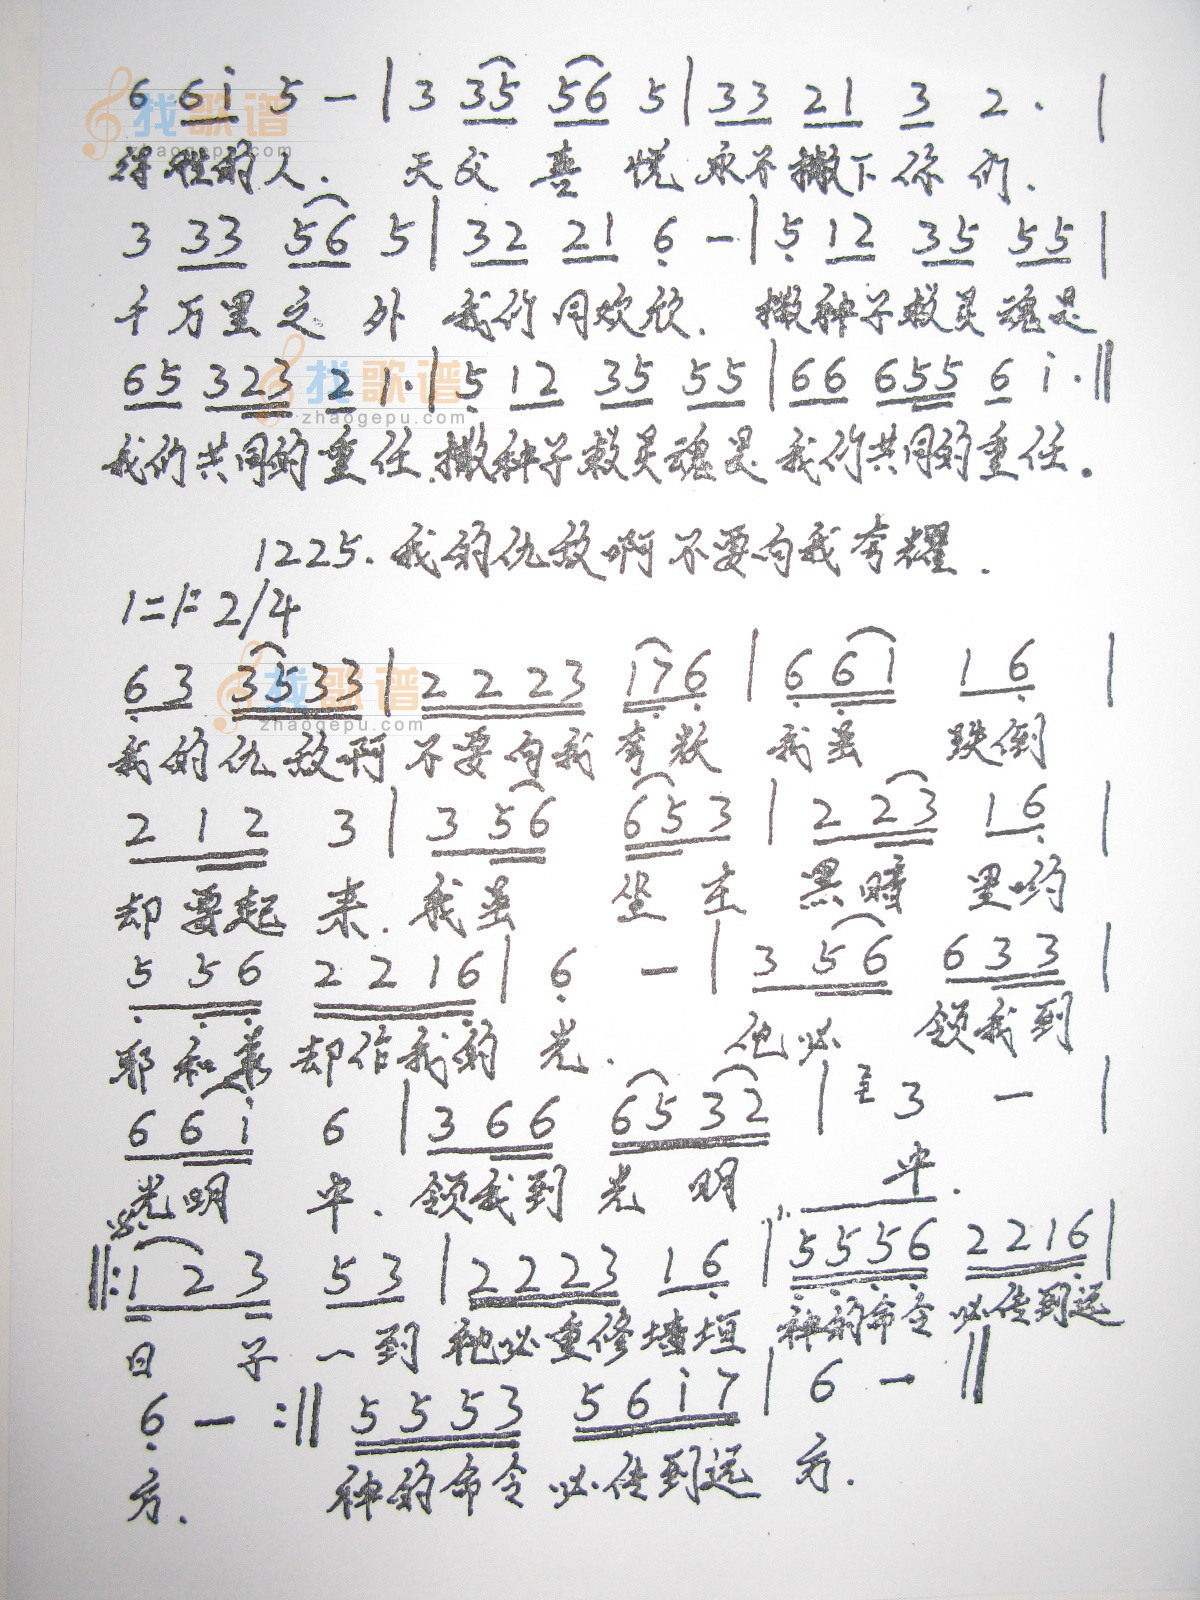 6 6i 5 — | 3 35 56 5 | 33 21 3 2 · |
得胜的人. 天父喜悦永不撇下你们.
3 33 56 5 | 32 21 6 — | 5 12 35 55 |
千万里之外我们同欢欣. 撒种子救灵魂是
65 323 2 1· | 5 12 35 55 | 66 655 6 i · ||
我们共同的重任.撒种子救灵魂是我们共同的重任。
1225.我的仇敌啊不要向我夸耀.
1=F 2/4
63 3533 | 2223 176 | 661 16 |
我的仇敌啊不要向我夸 我虽跌倒
212 3 | 356 653 | 223 16 |
却要起来.我虽坐在黑暗里哟
556 2216 | 6 — | 356 633 |
耶和华却作我的光. 他必领我到
66i 6 | 366 6532 | 3 — |
光明中.领我到光明中.
||: 123 53 | 2223 16 | 5556 2216 |
日子一到祂必重修墙垣神的命令必传到远
6 — :|| 5553 56i7 | 6 — ||
方. 神的命令必传到远方.
找歌谱
zhaogepu.com
找歌谱
zhaogepu.com
找歌谱
zhaogepu.com